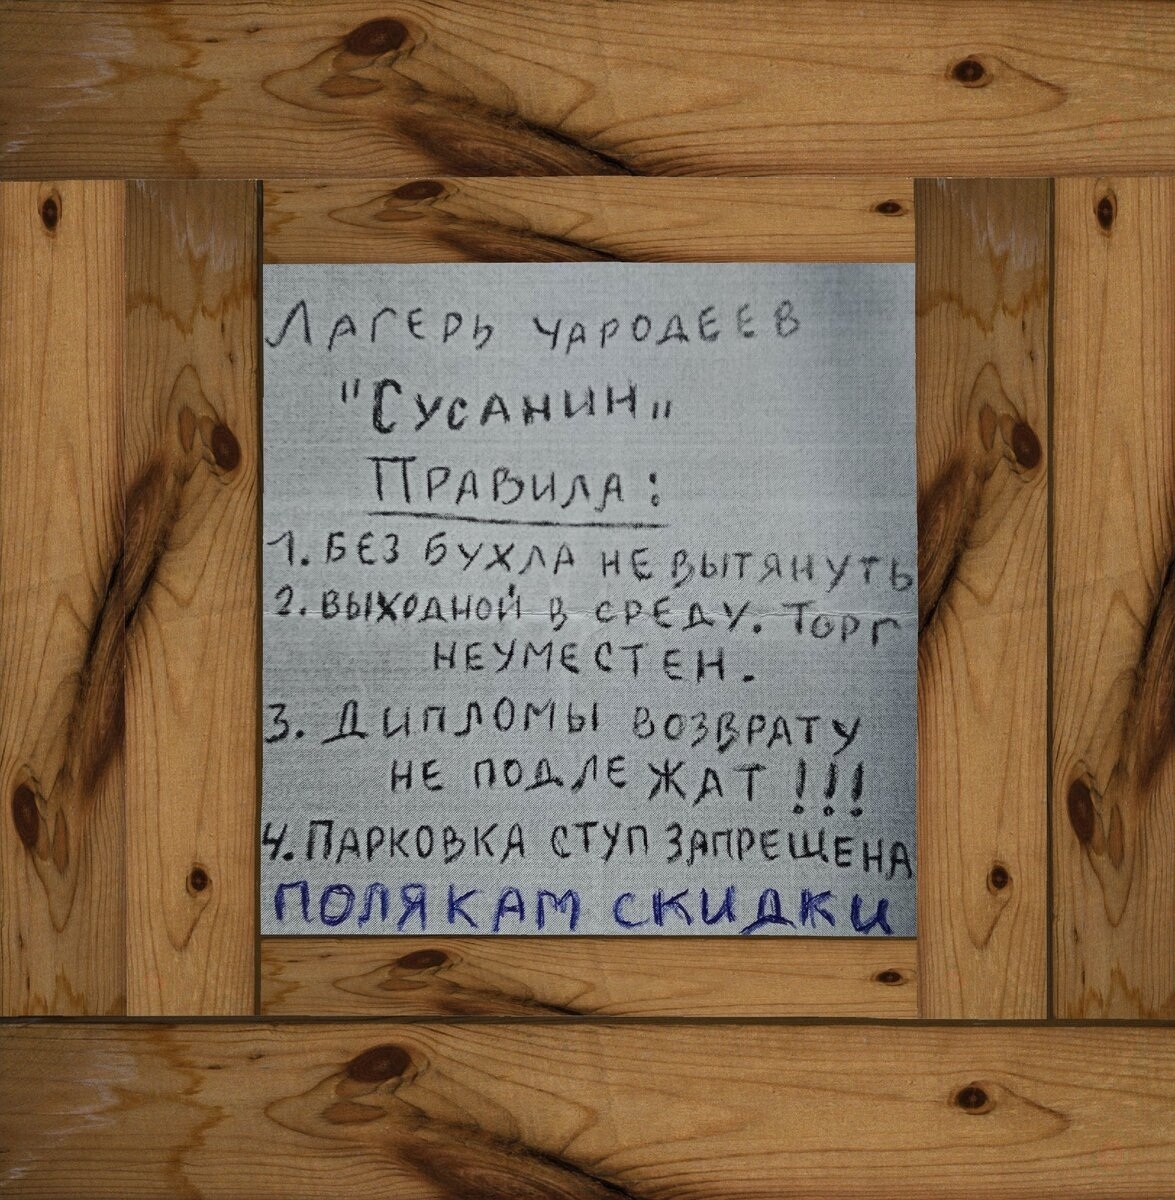 Лагерь чародеев
"Сусанин"
Правила:
1. Без бухла не вытянуть
2. Выходной в среду. Торг
неуместен.
3. Дипломы возврату
не подлежат!!!
4. Парковка ступ запрещена
Полякам скидки